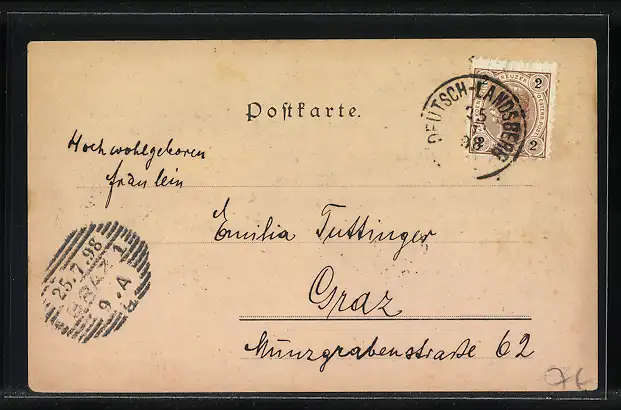 Postkarte.
DEUTSCH-LANDSBERG
98
2
2
2
Hochwohlgeboren
fräulein
Emilia Tuttinger
Graz
Münzgrabenstraße 62
25.7.98
GRAZ 1
9.A